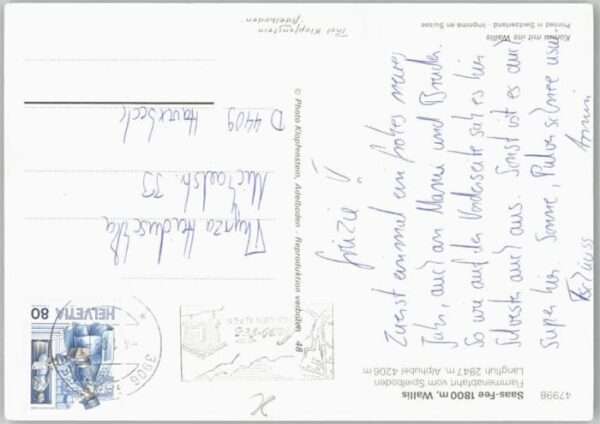 47998
Saas-Fee 1800 m, Wallis
Flammenabfahrt vom Spielboden
Langfluh 2847 m, Alphubel 4206 m
Grüezi!
Zuerst einmal ein frohes neues
Jahr, auch an Mama und Bruder.
So wie auf der Vorderseite sah es hier
Silvester auch aus. Sonst ist es auch
super hier. Sonne, Pulverschnee usw.
Tschüss
Armin
© Photo Klopfenstein, Adelboden - Reproduktion verboten 48
HELVETIA 80
3906
SAAS-FEE
D 4409
Havixbeck
Thes Klopfenstein
Adelboden
Kühner mit ins Wallis
Printed in Switzerland - Imprimé en Suisse